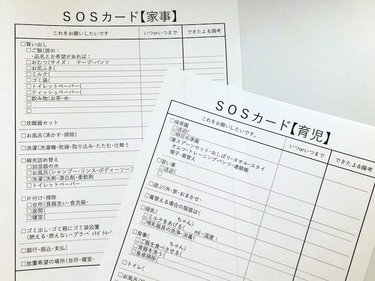 SOSカード【家事】
これをお願いしたいです
いつorいつまで
できたよ&備考
□買い出し
□ご飯(誰の:
・品名とか希望があれば:
□おむつ(サイズ: テープ・パンツ
□お尻ふき(
□ミルク(
□ゴミ袋(
□トイレットペーパー(
□ティッシュペーパー(
□飲み物(お茶・水・
□
□
□炊飯器セット
□お風呂(沸かす・掃除)
□洗濯(洗濯機・乾燥・取り込み・たたむ・仕舞う
□補充詰め替え
□加湿器の水
□お風呂(シャンプー・リンス・ボディーソープ
□洗濯(洗剤・漂白剤・柔軟剤
□トイレットペーパー
□片付け・掃除
□台所(食器洗い・食洗器・
□居間(
□寝室(
□ゴミ出し・ゴミ箱にゴミ袋設置
(燃える・燃えない・プラ・
□銀行・振込・支払(
□放置希望の場所(台所・寝室・
SOSカード【育児】
これをお願いしたいです
いつorいつまで
できたよ&備考
□保育園
□送迎(
□明日の準備
(着替え
帽子・着替え
□習い事
□送迎(
□遊ぶ(外・家・おまかせ・
□着替える場合の服装は(
□授乳( ちゃん)
□ミルクをあげる( ml・温度:
□哺乳器具の洗浄・消毒(
□食事( ちゃん)
□ご飯を食べさせる(
□食器を洗う(
□食卓掃除(
□トイレ(